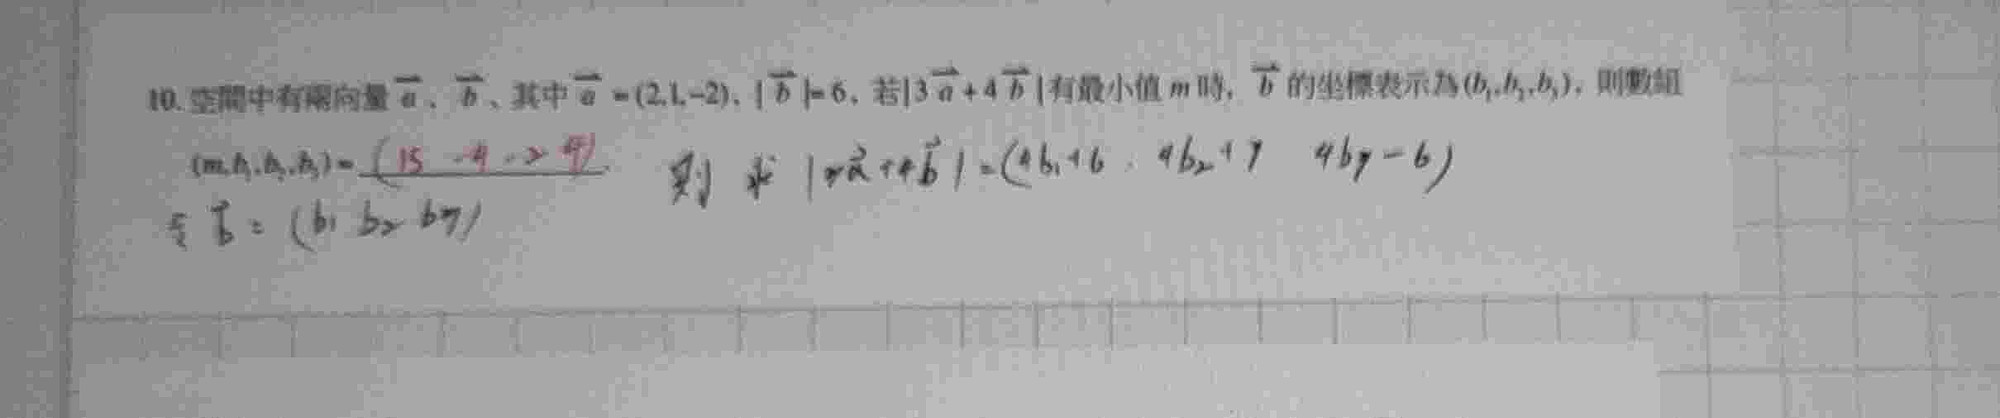 10. 空間中有兩向量 a、b、其中 a =(2,1,-2)、|b|=6, 若|3a+4b|有最小值 m 時, b 的坐標表示為(b₁,b₂,b₃), 則數組
(m,b₁,b₂,b₃)=(15 -4 -2 4)
b = (b₁ b₂ b3) 則 求 |3a+4b| =(4b₁+6 4b₂+3 4b3-6)